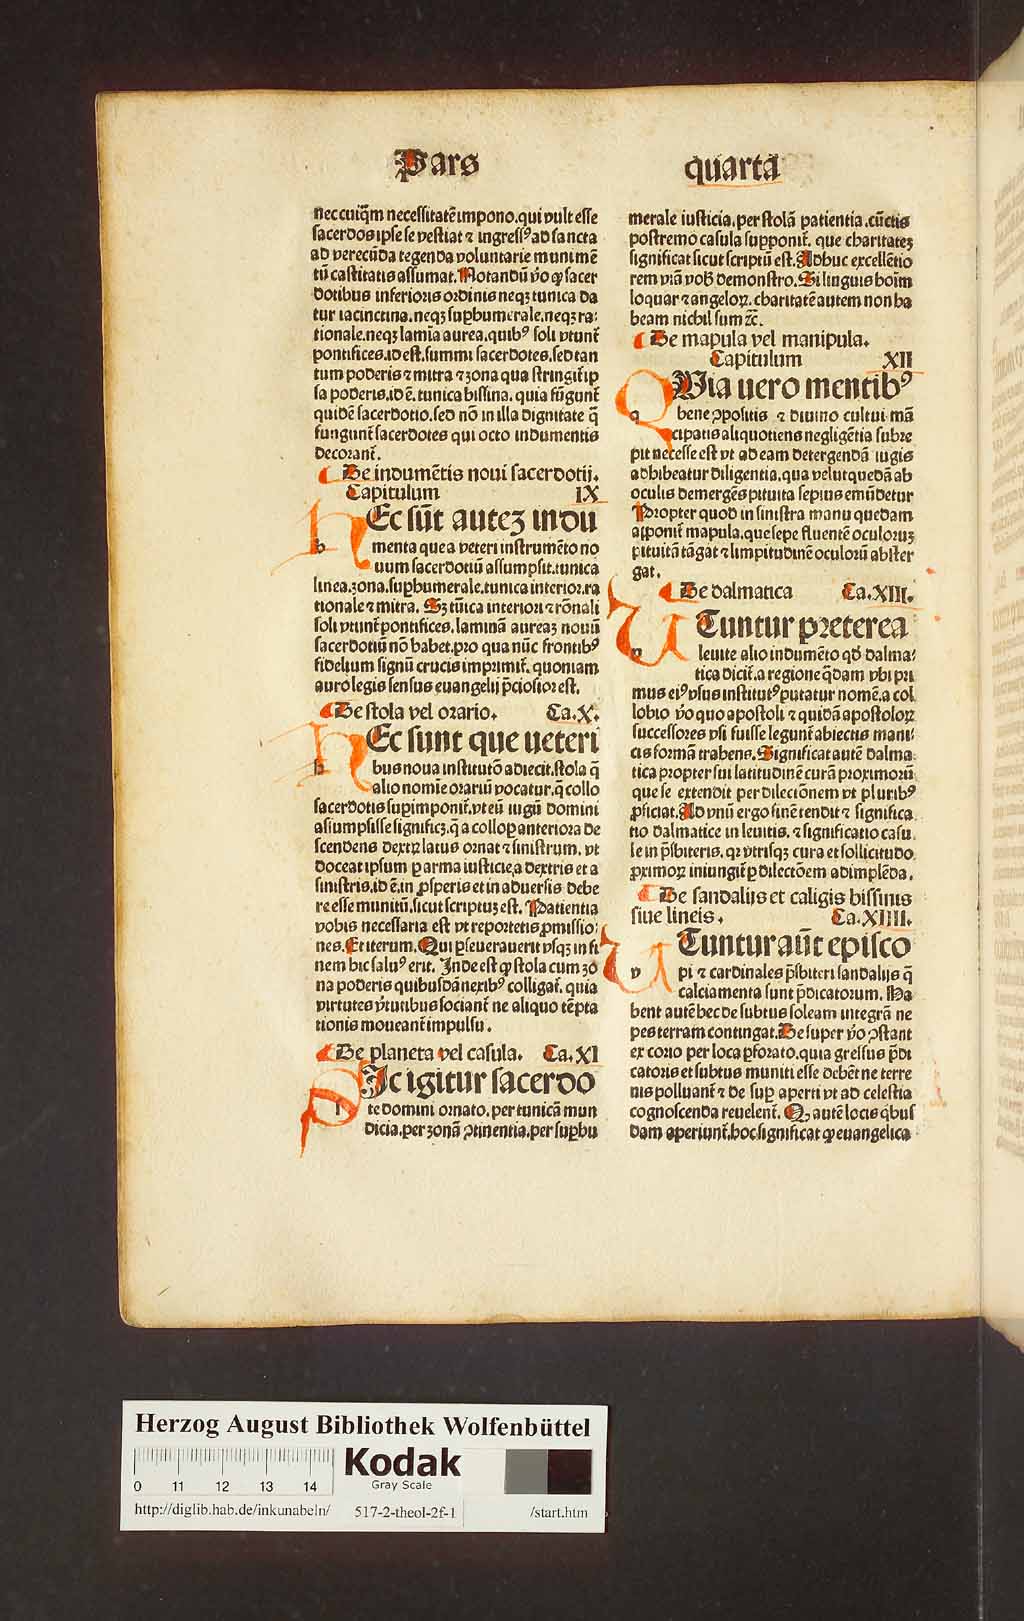 Pars
quarta
nec cuiq̃m necessitatẽ impono. qui vult esse
sacerdos ipse se vestiat ⁊ ingressꝰ ad sancta
ad verecũda tegenda voluntarie munimẽ
tũ castitatis assumat. Notandũ v̾o ꝙ sacer
dotibus inferioris ordinis neqꝫ tunica da
tur iacinctina. neqꝫ suꝑhumerale. neqꝫ ra⸗
tionale. neqꝫ lamĩa aurea. quibꝰ soli vtunt᷑
pontifices. id est. summi sacerdotes. sed tan
tum poderis ⁊ mitra ⁊ zona qua stringit᷑ ip
sa poderis. id ẽ. tunica bissina. quia fũgunt᷑
quidẽ sacerdotio. sed nõ in illa dignitate q̃
fungunt᷑ sacerdotes qui octo indumentis
decorant᷑.
De indumẽtis noui sacerdotij.
Capitulum IX
h
HEc sũt autez indu
menta que a veteri instrumẽto no
uum sacerdotiũ assumpsit. tunica
linea. zona. suꝑhumerale. tunica interior. ra
tionale ⁊ mitra. Sꝫ tũica interiori ⁊ rõnali
soli vtunt᷑ pontifices. laminã aureaꝫ nouũ
sacerdotiũ nõ habet. pro qua nũc frontibꝰ
fidelium signũ crucis imprimit᷑. quoniam
auro legis sensus euangelij p̃ciosior est.
De stola vel orario. Ca. X.
h
HEc sunt que ueteri
bus noua institutõ adiecit. stola q̃
alio nomĩe orariũ vocatur. q̃ collo
sacerdotis suꝑimponit᷑. vt eũ iugũ domini
assumpsisse significꝫ. q̃ a collo ꝑ anteriora de
scendens dextꝝ latus ornat ⁊ sinistrum. vt
doceat ipsum ꝑ arma iusticie. a dextris et a
sinistris. id ẽ. in ꝓsperis et in aduersis debe
re esse munitũ. sicut scriptuꝫ est. Patientia
vobis necessaria est vt reportetis ꝓmissio⸗
nes. Et iterum. Qui ꝑseuerauerit vsqꝫ in fi
nem hic saluꝰ erit. Inde est ꝙ stola cum zo
na poderis quibusdã nexibꝰ colligat᷑. quia
virtutes v̾tutibus sociant᷑ ne aliquo tẽpta
tionis moueant᷑ impulsu.
De planeta vel casula. Ca. XI
SIc igitur sacerdo
te domini ornato. per tunicã mun
dicia. per zonã ꝯtinentia. per suꝑhu
merale iusticia. per stolã patientia. cũctis
postremo casula supponit᷑. que charitateꝫ
significat sicut scriptũ est. Adhuc excellẽtio
rem viã vob̾ demonstro. Si linguis hoĩm
loquar ⁊ angeloꝝ. charitatẽ autem non ha
beam nichil sum ⁊c̃.
De mapula vel manipula.
Capitulum XII
q
QVia uero mentibꝰ
bene ꝯpositis ⁊ diuino cultui mã
cipatis aliquotiens negligẽtia subre
pit necesse est vt ad eam detergendã iugis
adhibeatur diligentia. qua velut quedã ab
oculis demergẽs pituita sepius emũdetur
Propter quod in sinistra manu quedam
apponit᷑ mapula. que sepe fluentẽ oculoruꝫ
pituitã tãgat ⁊ limpitudinẽ oculorũ abster
gat.
De dalmatica Ca. XIII.
v
VTuntur preterea
leuite alio indumẽto qd̾ dalma⸗
tica dicit᷑. a regione q̃dam vbi pri
mus eiꝰ vsus institutꝰ putatur nomẽ. a col
lobio v̾o quo apostoli ⁊ quidã apostoloꝝ
successores vsi fuisse legunt᷑ abiectis mani⸗
cis formã trahens. Significat autẽ dalma⸗
tica propter sui latitudinẽ curã proximorũ
que se extendit per dilectionem vt pluribꝰ
ꝓficiat. Ad vnũ ergo finẽ tendit ⁊ significa
tio dalmatice in leuitis. ⁊ significatio casu
le in p̃sbiteris. qꝛ vtrisqꝫ cura et sollicitudo
ꝓximoꝝ iniungit᷑ ꝑ dilectõem adimplẽda.
De sandalijs et caligis bissinis
siue lineis. Ca. XIIII.
v
VTuntur aũt episco
pi ⁊ cardinales p̃sbiteri sandalijs q̃
calciamenta sunt p̃dicatorum. Ha
bent autẽ hec de subtus soleam integrã ne
pes terram contingat. De super v̾o ꝯstant
ex corio per loca ꝑforato. quia gressus p̃di
catoris et subtus muniti esse debẽt ne terre
nis polluant᷑ ⁊ de suꝑ aperti vt ad celestia
cognoscenda reuelent᷑. Qꝫ autẽ locis q̃bus
dam aperiunt᷑. hoc significat ꝙ euangelica
Herzog August Bibliothek Wolfenbüttel
0 11 12 13 14
Kodak
Gray Scale
http://diglib.hab.de/inkunabeln/ 517-2-theol-2f-1 /start.htm